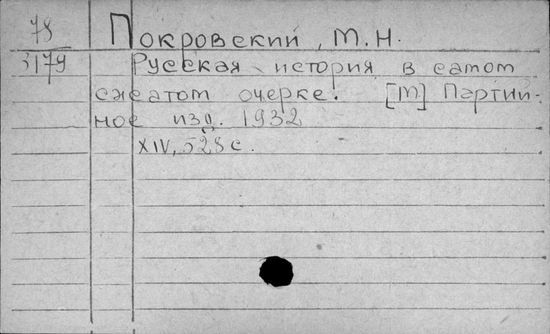 78 Покровский, М.Н.
3179 Русская история в самом
сжатом очерке. [М] Партий-
ное изд. 1932
XIV, 528 с.